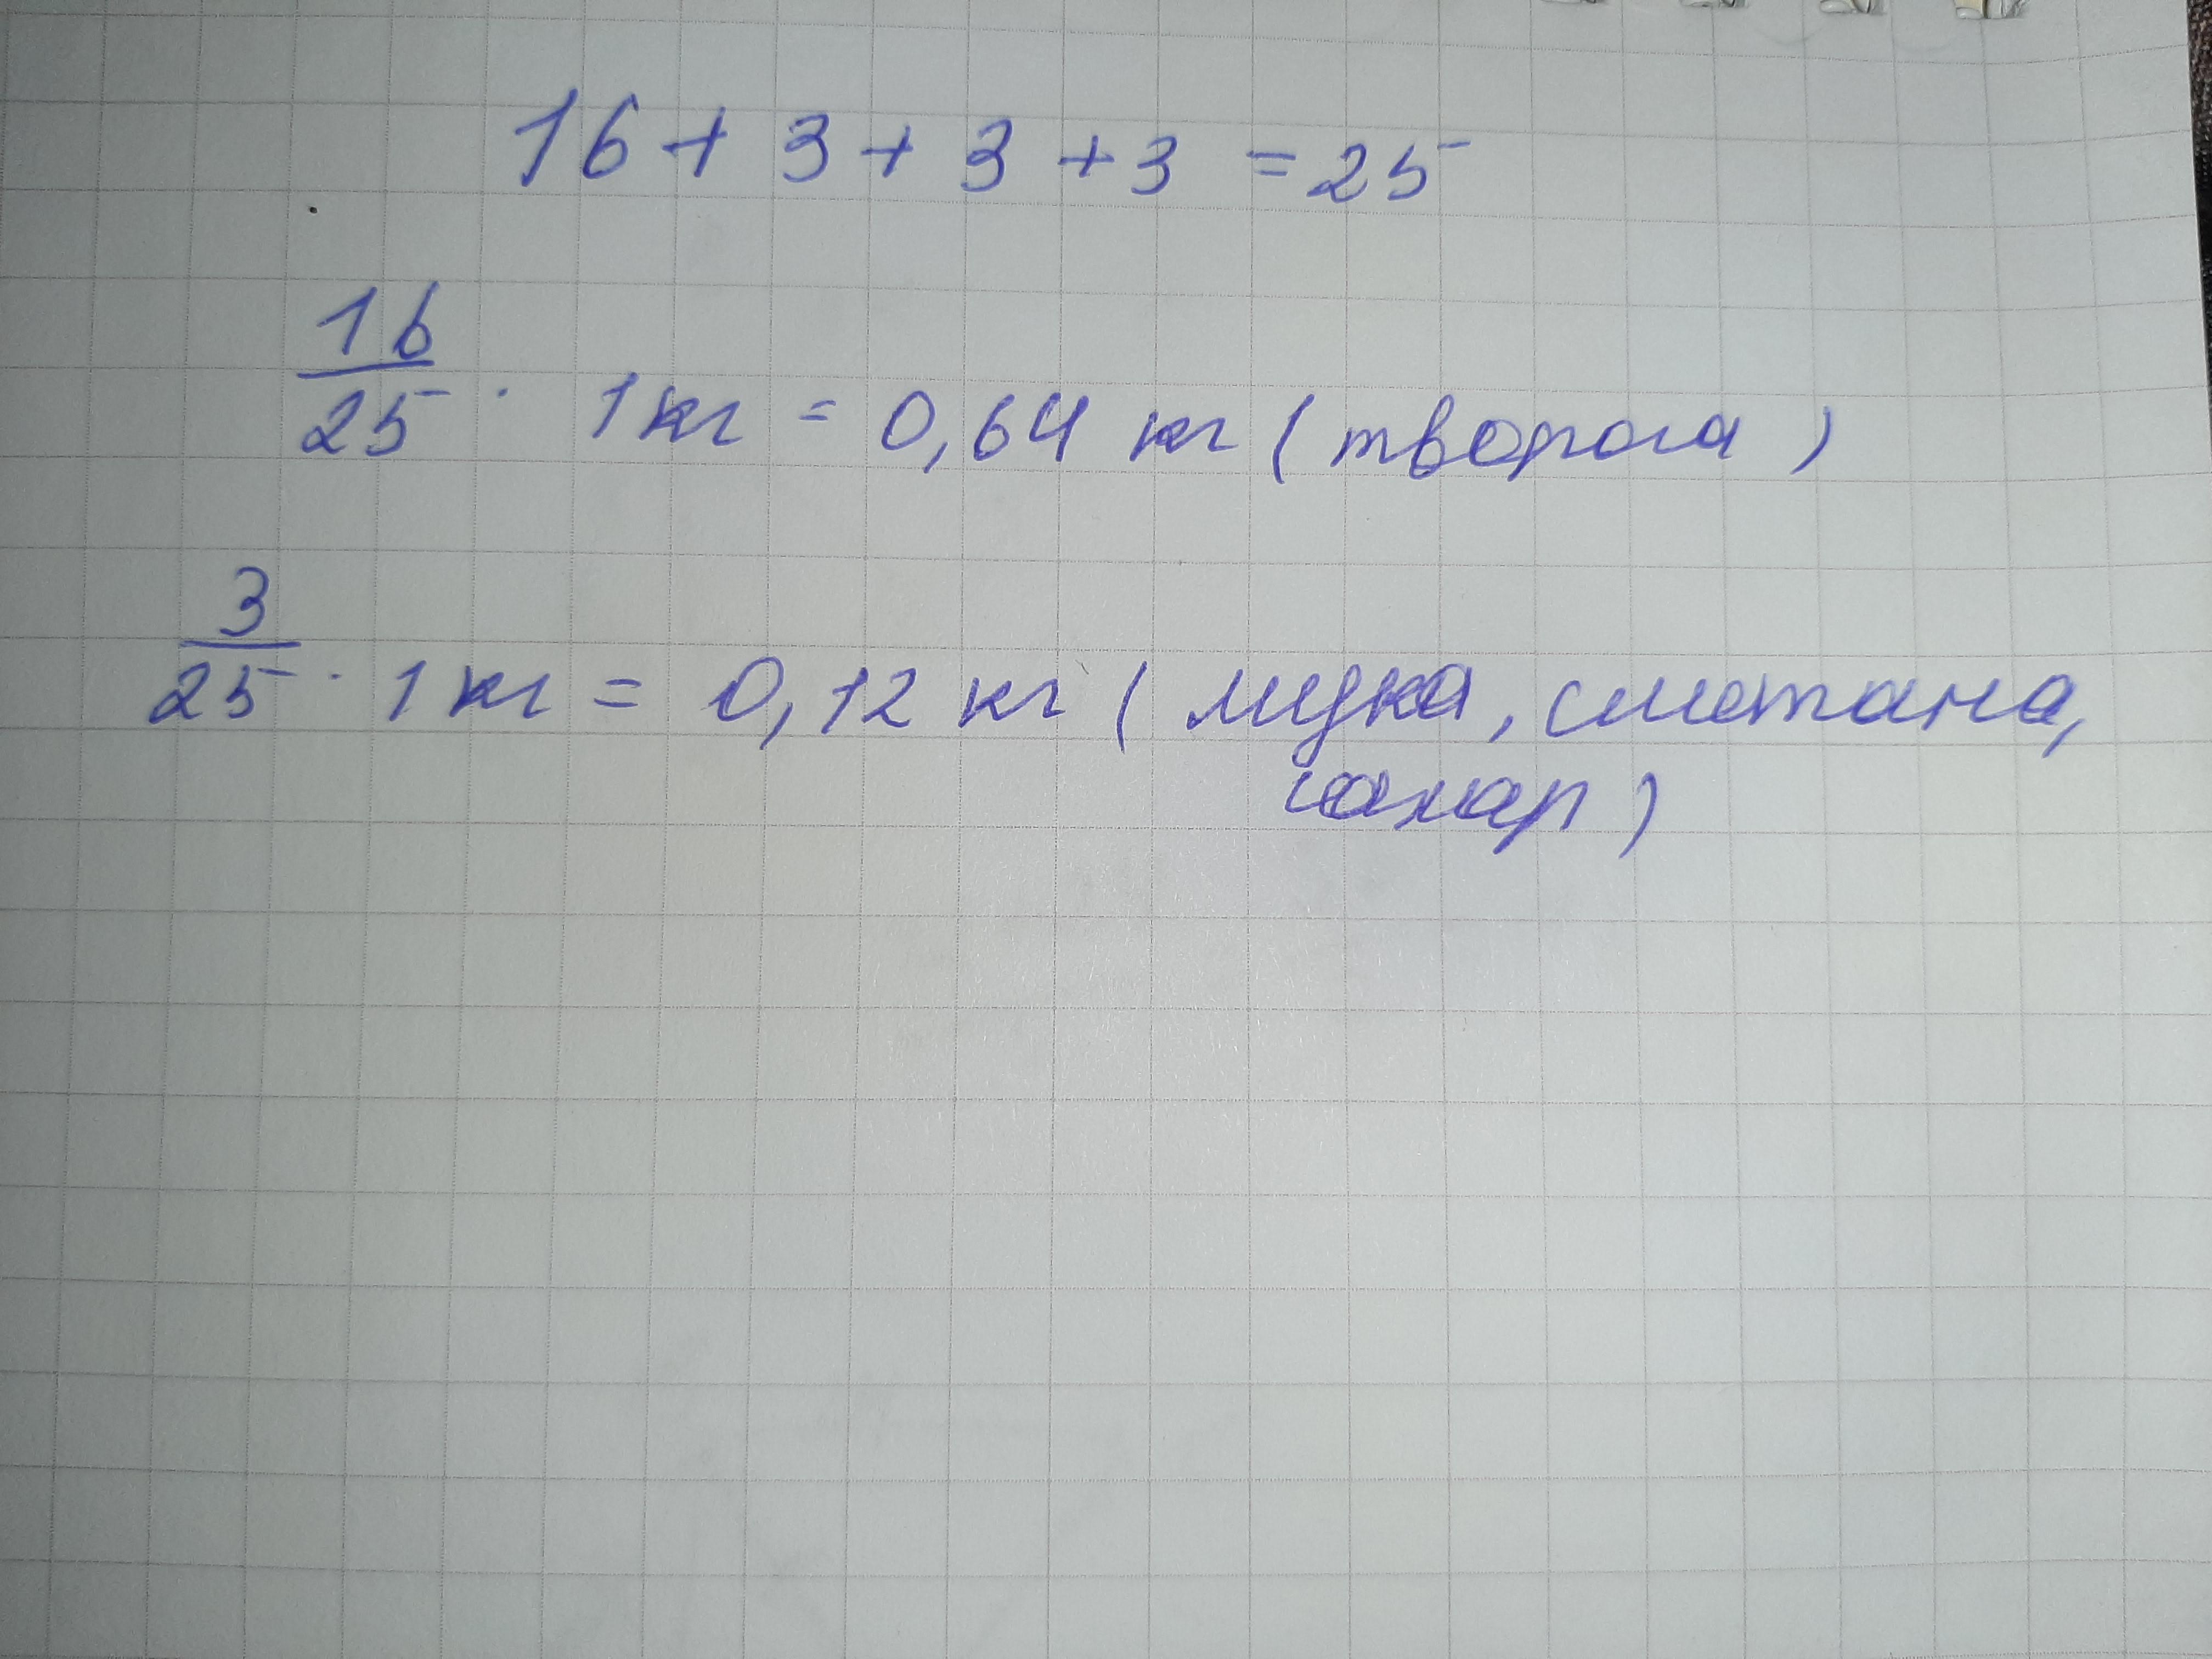 16 + 3 + 3 + 3 = 25
16/25 · 1 кг = 0,64 кг (творога)
3/25 · 1 кг = 0,12 кг (мука, сметана,
сахар)